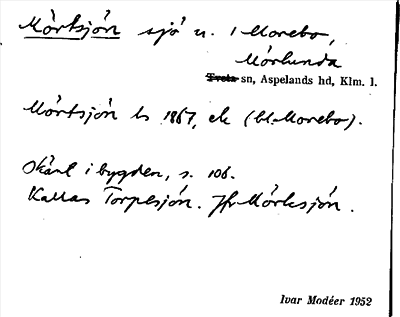 Mörtsjön sjö n. i Morebo,
Mörlunda
sn, Aspelands hd, Klm. l.
Mörtsjön ls 1867, ek (bl. Morebo).
i bygden, s. 106.
Kallas Torpesjön. Jfr Mörksjön.
Ivar Modéer 1952